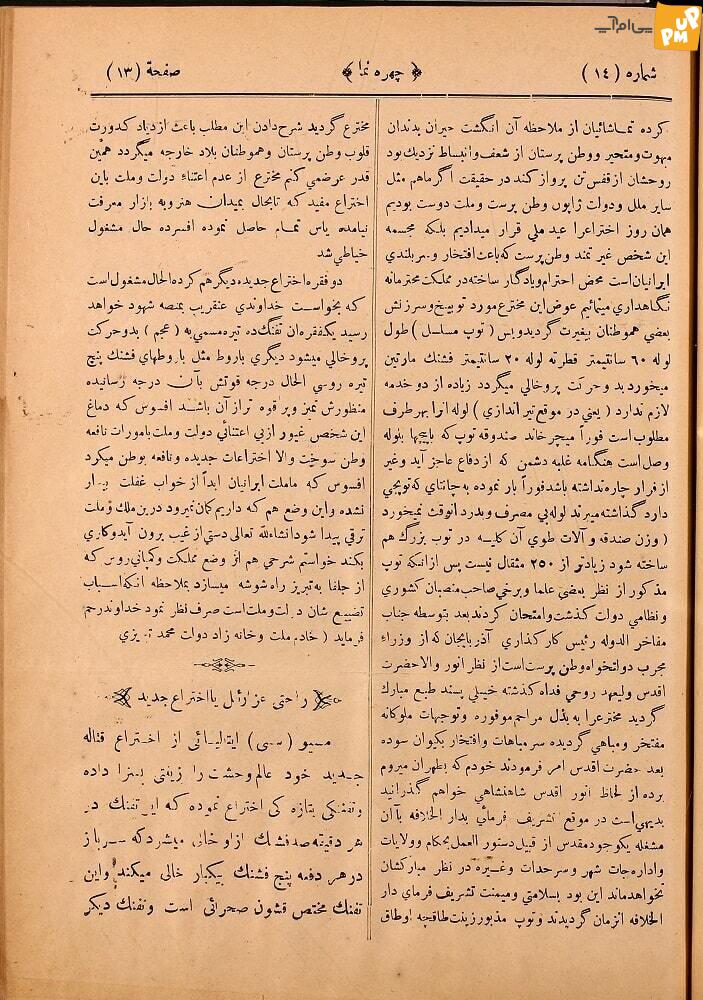 پی‌ام‌آپ
PM UP
شماره (۱٤)
﴿ چهره نما ﴾
صفحة (۱۳)
کرده تماشائیان از ملاحظه آن انگشت حیران بدندان
مبهوت و متحیر و وطن پرستان از شعف و انبساط نزدیک بود
روحشان از قفس تن پرواز کند در حقیقت اگر ماهم مثل
سایر ملل و دولت ژاپون وطن پرست و ملت دوست بودیم
همان روز اختراعرا عید ملی قرار میدادیم بلکه مجسمه
این شخص غیرتمند وطن پرست که باعث افتخار و سربلندی
ایرانیان است محض احترام و یادگار ساخته در مملکت محترمانه
نگاهداری مینمائیم عوض این مخترع مورد توبیخ و سرزنش
بعضی هموطنان بیغیرت گردید وبس ( توپ مسلسل ) طول
لوله ٦٠ سانتیمتر قطر ته لوله ۲۰ سانتیمتر فشنك مارتین
میخورد بد و حرکت پر و خالی میگردد زیاده از دو خدمه
لازم ندارد ( یعنی در موقع تیر اندازی ) لوله آنرا بهر طرف
مطلوب است فوراً میچرخاند صندوقه توپ که باپیچها بلوله
وصل است هنگامه غلبه دشمن که از دفاع عاجز آید و غیر
از فرار چاره نداشته باشد فوراً باز نموده به چانتای که توپچی
دارد گذاشته میبرند لوله بی مصرف و بدرد آنوقت نمیخورد
( وزن صندقه و آلات طوی آن کلیه در توپ بزرك هم
ساخته شود زیادتر از ۲۵۰ مثقال نیست پس از آنکه توپ
مذکور از نظر بعضی علما و برخی صاحب منصبان کشوری
و نظامی دولت گذشت و امتحان کردند بعد بتوسطه جناب
مفاخر الدوله رئیس کارگذاری آذربایجان که از وزراء
مجرب دولتخواه وطن پرست است از نظر انور والا حضرت
اقدس ولیعهد روحی فداه گذشته خیلی پسند طبع مبارك
گردید مخترعرا به بذل مراحم موفوره و توجهات ملوکانه
مفتخر و مباهی گردیده سر مباهات و افتخار بکیوان سوده
بعد حضرت اقدس امر فرمودند خودم که بطهران میروم
برده از لحاظ انور اقدس شاهنشاهی خواهم گذرانید
بدیهی است در موقع تشریف فرمائی بدار الخلافه با آن
مشغله یکوجود مقدس از قبیل دستور العمل بحکام و ولایات
و اداره جات شهر و سرحدات و غیره در نظر مبارکشان
نخواهد ماند این بود بسلامتی و میمنت تشریف فرمای دار
الخلافه انزمان گردیدند و توپ مذبور زینت طاقچه اوطاق
مخترع گردید شرح دادن این مطلب باعث ازدیاد کدورت
قلوب وطن پرستان و هموطنان بلاد خارجه میگردد همین
قدر عرض می کنم مخترع از عدم اعتناء دولت و ملت باین
اختراع مفید که تابحال بمیدان هنر و به بازار معرفت
نیامده یاس تمام حاصل نموده افسرده حال مشغول
خیاطی شد
دو فقره اختراع جدیده دیگر هم کرده الحال مشغول است
که بخواست خداوندی عنقریب بمنصه شهود خواهد
رسید یکفقره آن تفنگ ده تیره مسمی به ( عجم ) بدو حرکت
پر و خالی میشود دیگری باروط مثل باروطهای فشنك پنج
تیره روسی الحال درجه قوتش بآن درجه رسانیده
منظورش تمیز و پر قوه تر از آن باشد افسوس که دماغ
این شخص غیور از بی اعتنائی دولت و ملت بامورات نافعه
وطن سوخت والا اختراعات جدیده و نافعه بوطن میکرد
افسوس که ما ملت ایرانیان ابداً از خواب غفلت بیدار
نشده و این وضع هم که داریم گمان نمیرود در بن ملک و ملت
ترقی پیدا شود انشاءالله تعالی دستی از غیب برون آید و کاری
بکند خواستم شرحی هم از وضع مملکت و کمپانی روس که
از جلفا به تبریز راه شوشه میسازد بملاحظه آنکه اسباب
تضییع شان دولت و ملت است صرف نظر نمود خداوند رحم
فرماید ( خادم ملت و خانه زاد دولت محمد تبریزی
راحتی عزرائل با اختراع جدید
مسیو (سی) ایتالیائی از اختراع قتاله
جدید خود عالم وحشت را زینتی بسزا داده
و تفنگی بتازه کی اختراع نموده که این تفنك در
هر دقیقه صد فشنك از او خالی میشود که سرباز
در هر دفعه پنج فشنك بیکبار خالی میکند و این
تفنك مختص قشون صحرائی است و تفنك دیگر